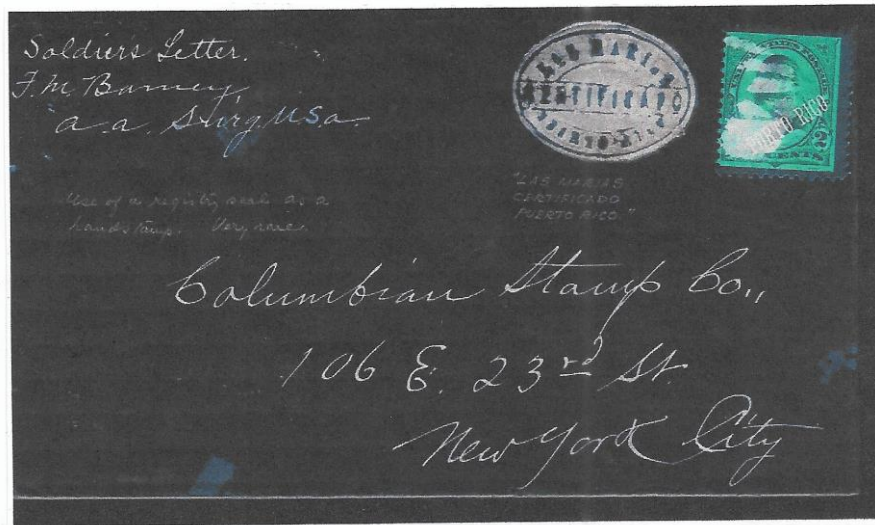 Soldier's Letter.
F. M. Barney
a. a. Surg. U.S.a.
LAS MARIAS
CERTIFICADO
PUERTO RICO
PORTO RICO
2
CENTS
Use of a registry seal as a
handstamp. Very rare.
"LAS MARIAS
CERTIFICADO
PUERTO RICO."
Columbian Stamp Co.,
106 E. 23rd St.
New York City